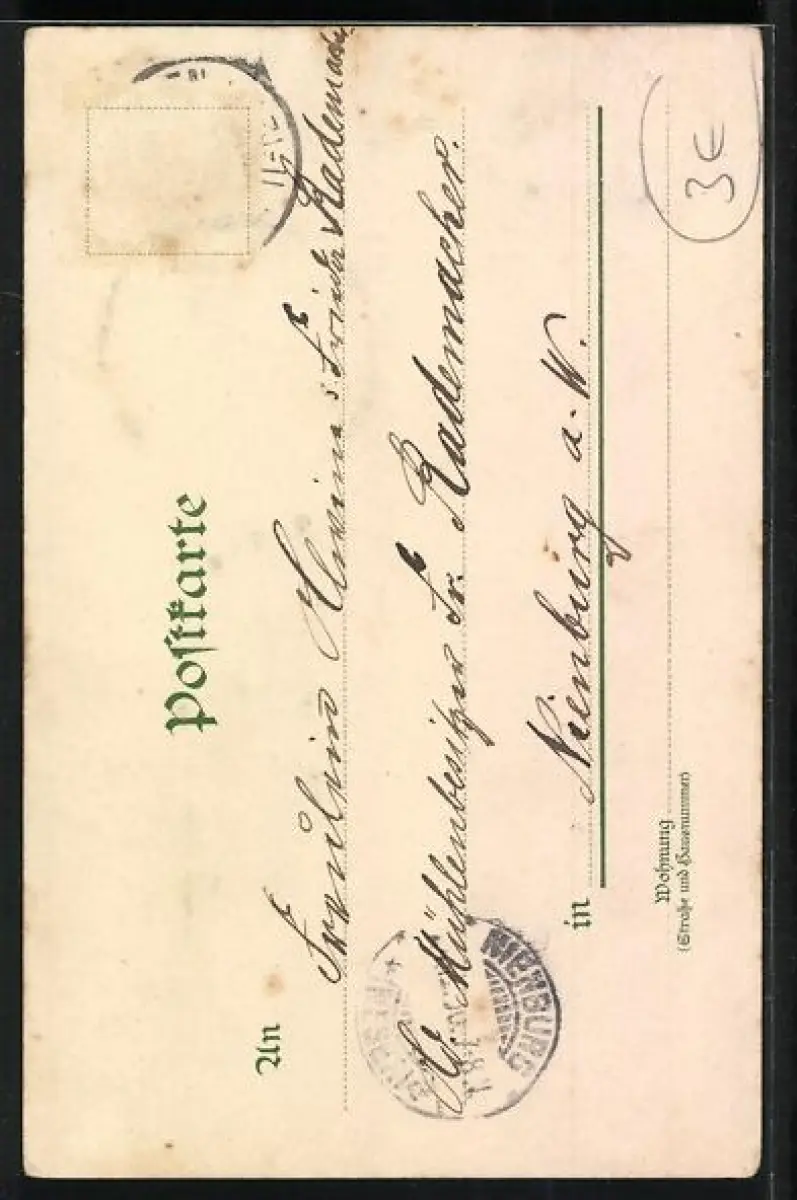 Postkarte
An
Fräulein Alwine u. Frieda Rademacher
Mühlenbesitzer Fr. Rademacher.
in
Nienburg a. W.
Wohnung
(Straße und Hausnummer)
3€
NIENBURG